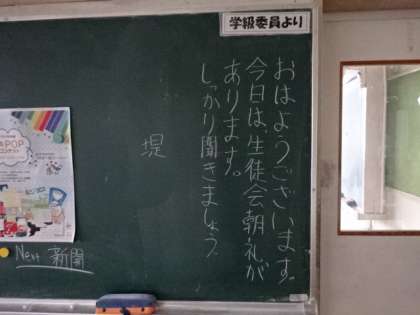 学級委員より
おはようございます。
今日は、生徒会朝礼が
あります。
しっかり聞きましょう。
堤
POP
Next 新聞